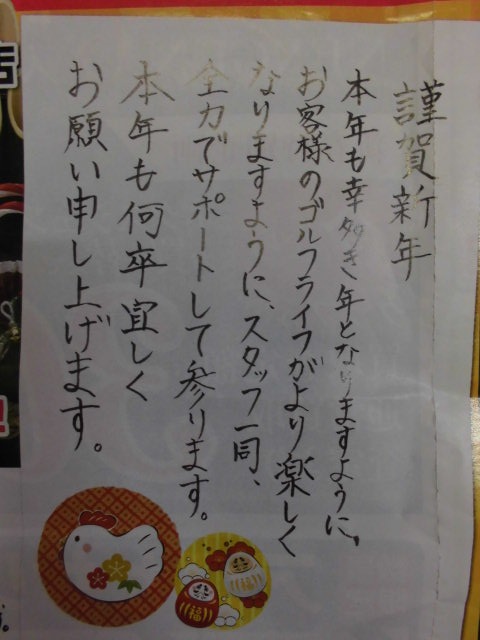 謹賀新年
本年も幸多き年となりますように、
お客様のゴルフライフがより楽しく
なりますように、スタッフ一同、
全力でサポートして参ります。
本年も何卒宜しく
お願い申し上げます。
福
福
店
!
す。